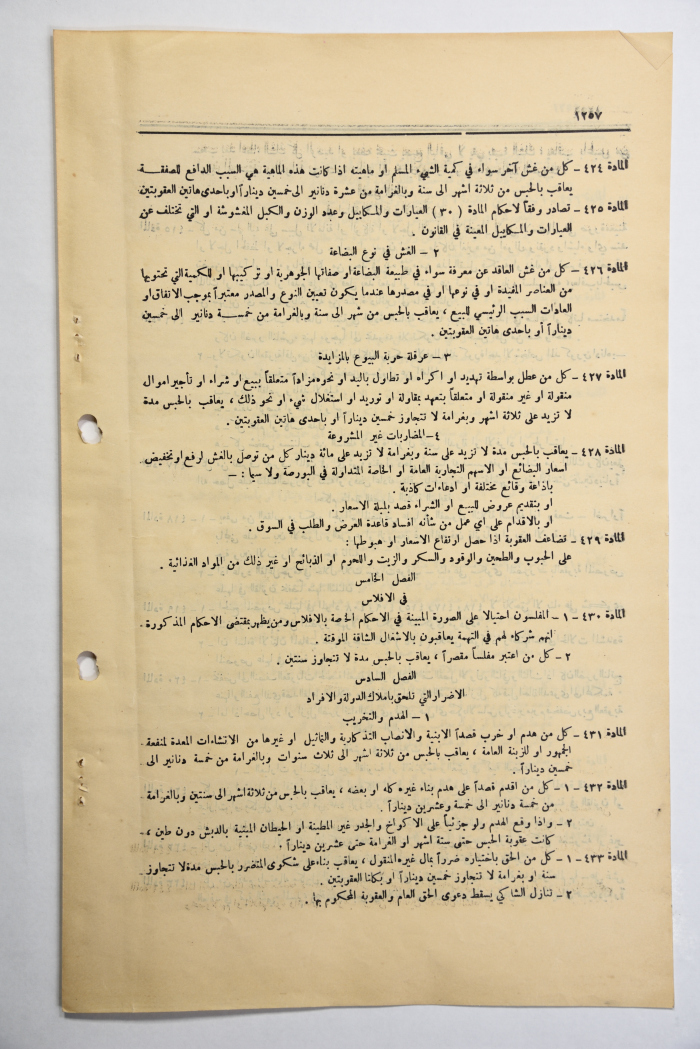 ١٢٥٧
المادة ٤٢٤ - كل من غش آخر سواء في كمية الشيء المسلم او ماهيته اذا كانت هذه الماهية هي السبب الدافع للصفقة
يعاقب بالحبس من ثلاثة اشهر الى سنة وبالغرامة من عشرة دنانير الى خمسين ديناراً او باحدى هاتين العقوبتين
المادة ٤٢٥ - تصادر وفقاً لاحكام المادة ( ٣٠ ) العيارات والمكاييل وعدد الوزن والكيل المغشوشة او التي تختلف عن
العيارات والمكاييل المعينة في القانون .
٢ - الغش في نوع البضاعة
المادة ٤٢٦ - كل من غش العاقد عن معرفة سواء في طبيعة البضاعة او صفاتها الجوهرية او تركيبها او للكمية التي تحتويها
من العناصر المفيدة او في نوعها او في مصدرها عندما يكون تعيين النوع والمصدر معتبراً بموجب الاتفاق او
العادات السبب الرئيسي للبيع ، يعاقب بالحبس من شهر الى سنة وبالغرامة من خمسة دنانير الى خمسين
ديناراً أو باحدى هاتين العقوبتين .
٣ - عرقلة حرية البيوع بالمزايدة
المادة ٤٢٧ - كل من عطل بواسطة تهديد او اكراه او تطاول باليد او نحوه مزاداً متعلقاً ببيع او شراء او تأجير اموال
منقولة او غير منقولة او متعلقاً بتعهد بمقاولة او توريد او استغلال شيء او نحو ذلك ، يعاقب بالحبس مدة
لا تزيد على ثلاثة اشهر وبغرامة لا تتجاوز خمسين ديناراً او باحدى هاتين العقوبتين .
٤ - المضاربات غير المشروعة
المادة ٤٢٨ - يعاقب بالحبس مدة لا تزيد على سنة وبغرامة لا تزيد على مائة دينار كل من توصل بالغش لرفع او تخفيض
اسعار البضائع او الاسهم التجارية العامة او الخاصة المتداولة في البورصة ولا سيما : -
باذاعة وقائع مختلقة او ادعاءات كاذبة .
او بتقديم عروض للبيع او الشراء قصد بلبلة الاسعار .
او بالاقدام على اي عمل من شأنه افساد قاعدة العرض والطلب في السوق .
المادة ٤٢٩ - تضاعف العقوبة اذا حصل ارتفاع الاسعار او هبوطها :
على الحبوب والطحين والوقود والسكر والزيت واللحوم او الذبائح او غير ذلك من المواد الغذائية .
الفصل الخامس
في الافلاس
المادة ٤٣٠ - ١ - المفلسون احتيالا على الصورة المبينة في الاحكام الخاصة بالافلاس ومن يظهر بمقتضى الاحكام المذكورة
انهم شركاء لهم في التهمة يعاقبون بالاشغال الشاقة الموقتة .
٢ - كل من اعتبر مفلساً مقصراً ، يعاقب بالحبس مدة لا تتجاوز سنتين .
الفصل السادس
الاضرار التي تلحق باملاك الدولة والافراد
١ - الهدم والتخريب
المادة ٤٣١ - كل من هدم او خرب قصداً الابنية والانصاب التذكارية والتماثيل او غيرها من الانشاءات المعدة لمنفعة
الجمهور او للزينة العامة ، يعاقب بالحبس من ثلاثة اشهر الى ثلاث سنوات وبالغرامة من خمسة دنانير الى
خمسين ديناراً .
المادة ٤٣٢ - ١ - كل من اقدم قصداً على هدم بناء غيره كله او بعضه ، يعاقب بالحبس من ثلاثة اشهر الى سنتين وبالغرامة
من خمسة دنانير الى خمسة وعشرين ديناراً .
٢ - واذا وقع الهدم ولو جزئياً على الاكواخ والجدر غير المطينة او الحيطان المبنية بالدبش دون طين ،
كانت عقوبة الحبس حتى ستة اشهر او الغرامة حتى عشرين ديناراً .
المادة ٤٣٣ - ١ - كل من الحق باختياره ضرراً بمال غيره المنقول ، يعاقب بناء على شكوى المتضرر بالحبس مدة لا تتجاوز
سنة او بغرامة لا تتجاوز خمسين ديناراً او بكلتا العقوبتين .
٢ - تنازل الشاكي يسقط دعوى الحق العام والعقوبة المحكوم بها .